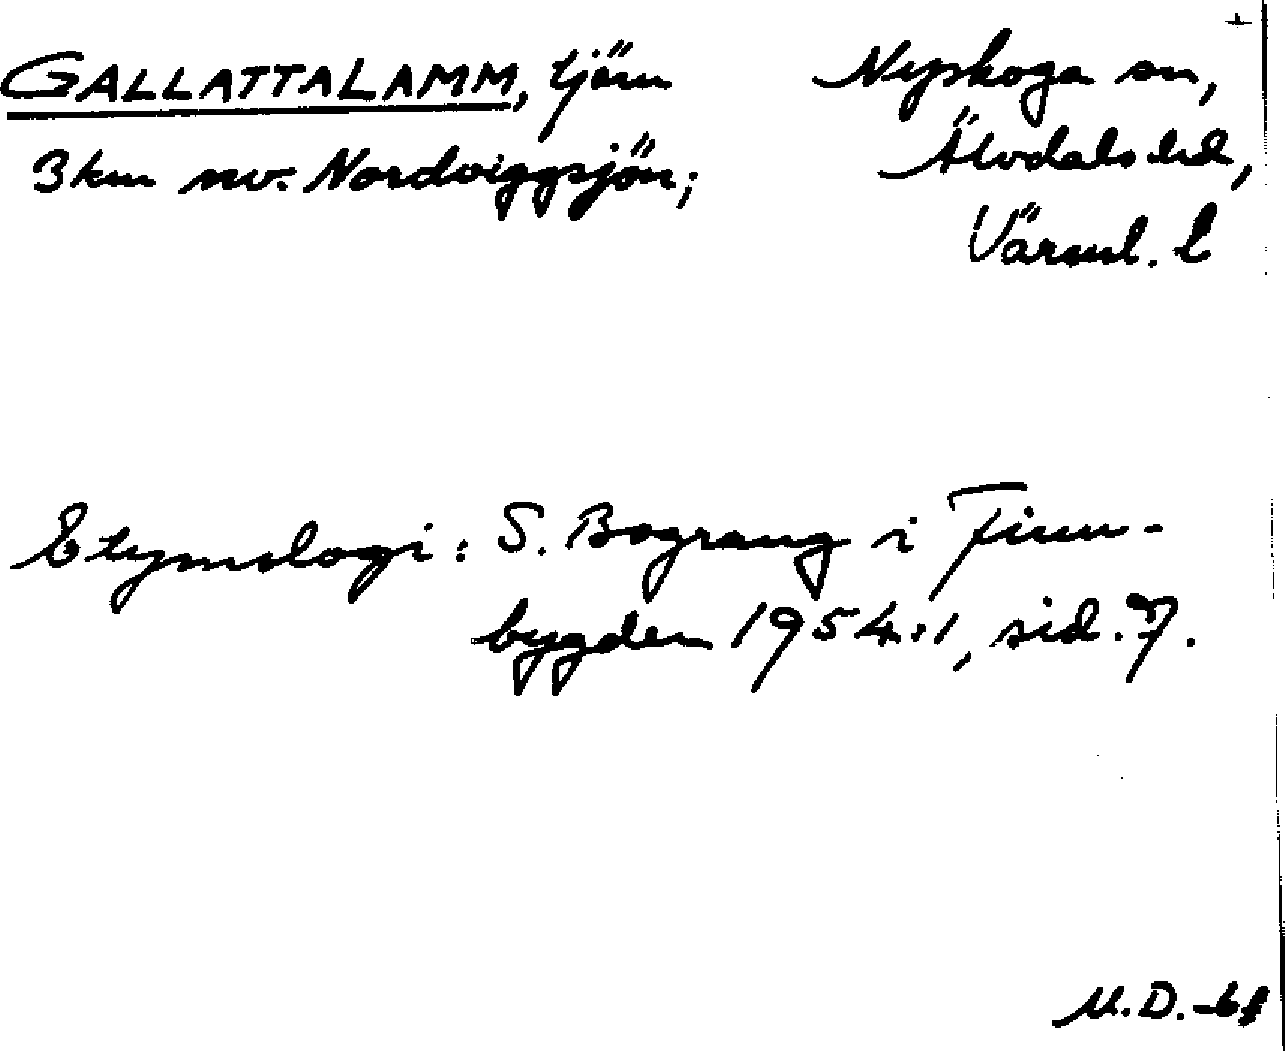 GALLATTALAMM, tjärn
3 km nv. Nordviggsjön;
Nyskoga sn,
Älvdals hd,
Värml. l
Etymologi: S. Bograng i Finn-
bygden 1954:1, sid. 7.
M.D. -61